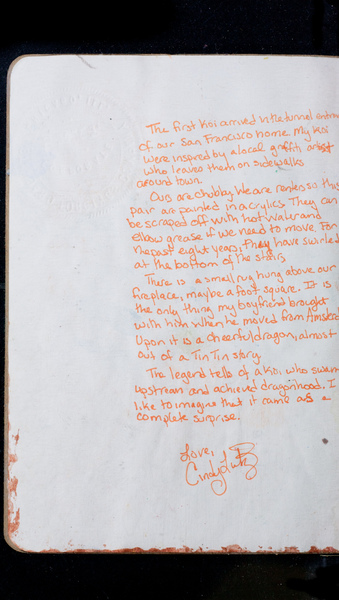 The first koi arrived in the tunnel entry
of our San Francisco home. My koi
were inspired by a local graffiti artist
who leaves them on sidewalks
around town.
Ours are chubby. We are renters so this
pair are painted in acrylics. They can
be scraped off with hot water and
elbow grease if we need to move. For
the past eight years, they have swirled
at the bottom of the stairs.
There is a small rug hung above our
fireplace, maybe a foot square. It is
the only thing my boyfriend brought
with him when he moved from Amsterd
Upon it is a cheerful dragon, almost
out of a Tin Tin story.
The legend tells of a koi who swam
upstream and achieved dragonhood. I
like to imagine that it came as a
complete surprise.
Love,
Cindy